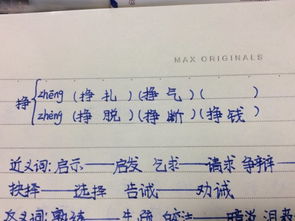 MAX ORIGINALS
挣 zhēng (挣扎) (挣气) (　　)
zhèng (挣脱) (挣断) (挣钱)
近义词:启示——启发 乞求——请求 争辩——
抉择——选择 告诫——劝诫
反义词:熟悉——生